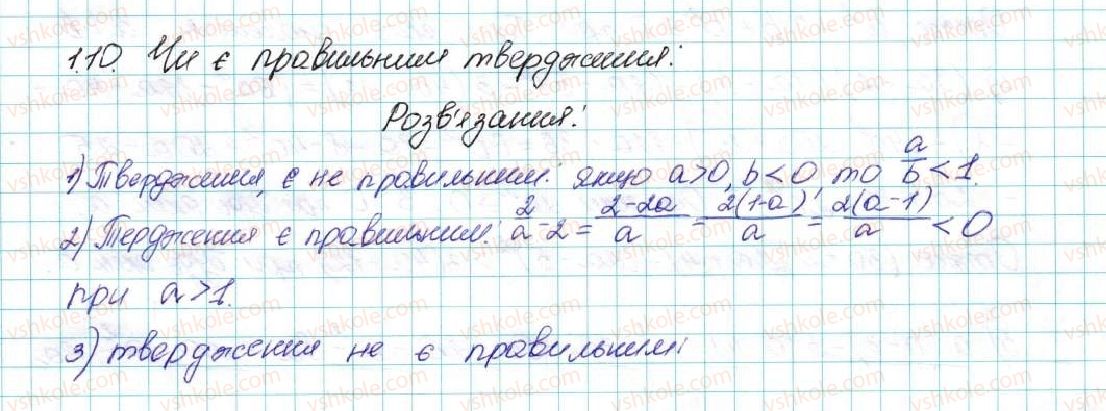 1.10. Чи є правильним твердження:
Розв'язання:
1) Твердження, є не правильним: якщо a>0, b<0, то a/b < 1.
2) Тердження є правильним: 2/a - 2 = (2-2a)/a = (2(1-a))/a = (2(a-1))/a < 0
при a>1.
3) твердження не є правильним: